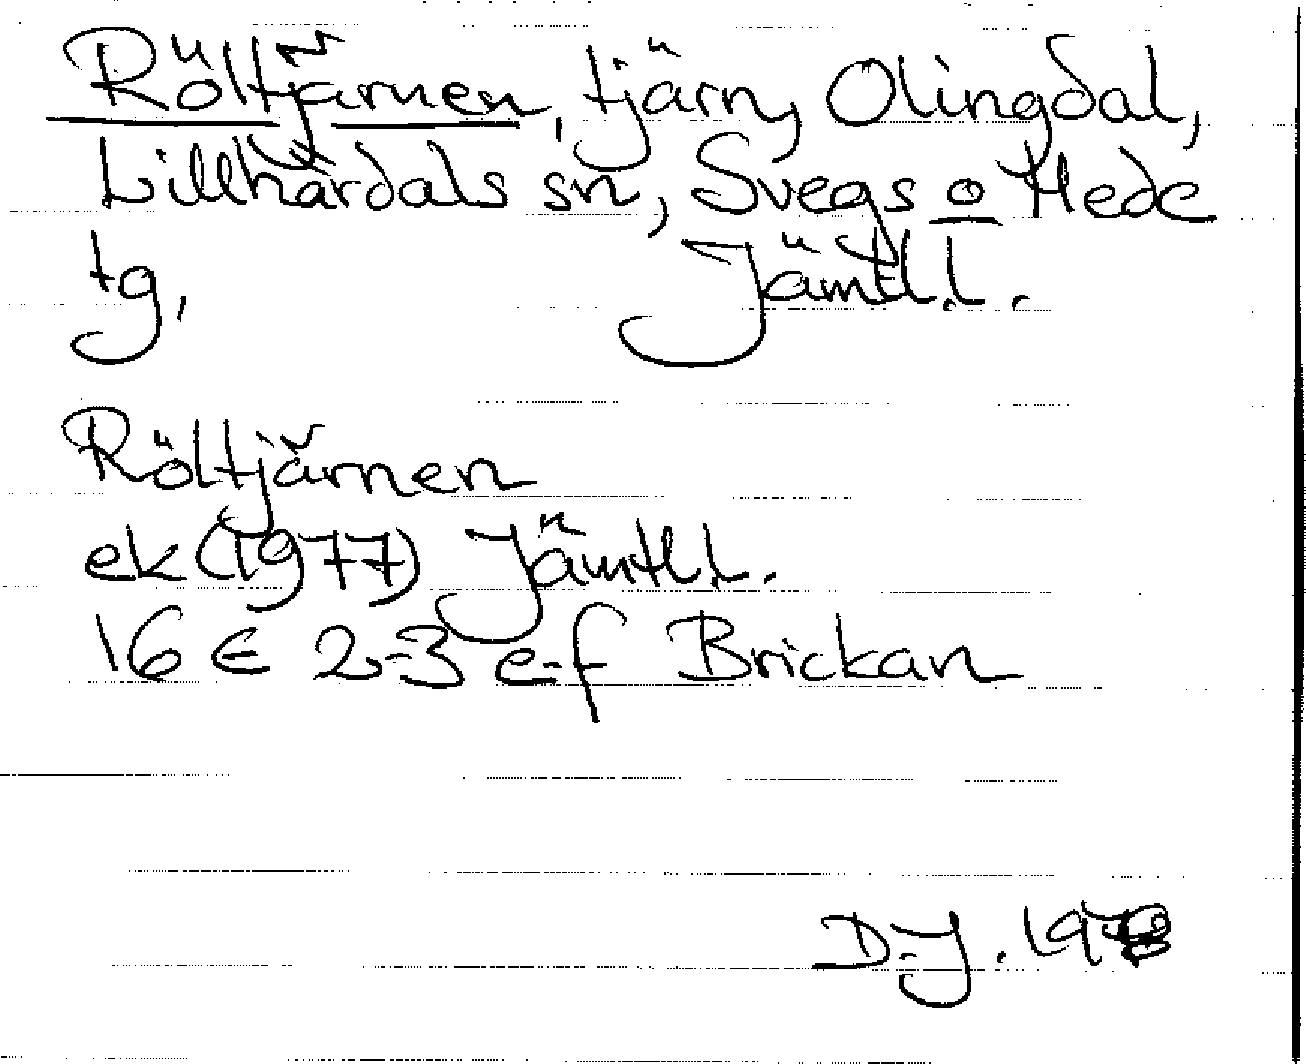 Röltjärnen, tjärn, Olingdal,
Lillhärdals sn, Svegs o Hede
tg, Jämtl.l.
Röltjärnen
ek (1977) Jämtl.l.
16 E 2-3 e-f Brickan
D.J.